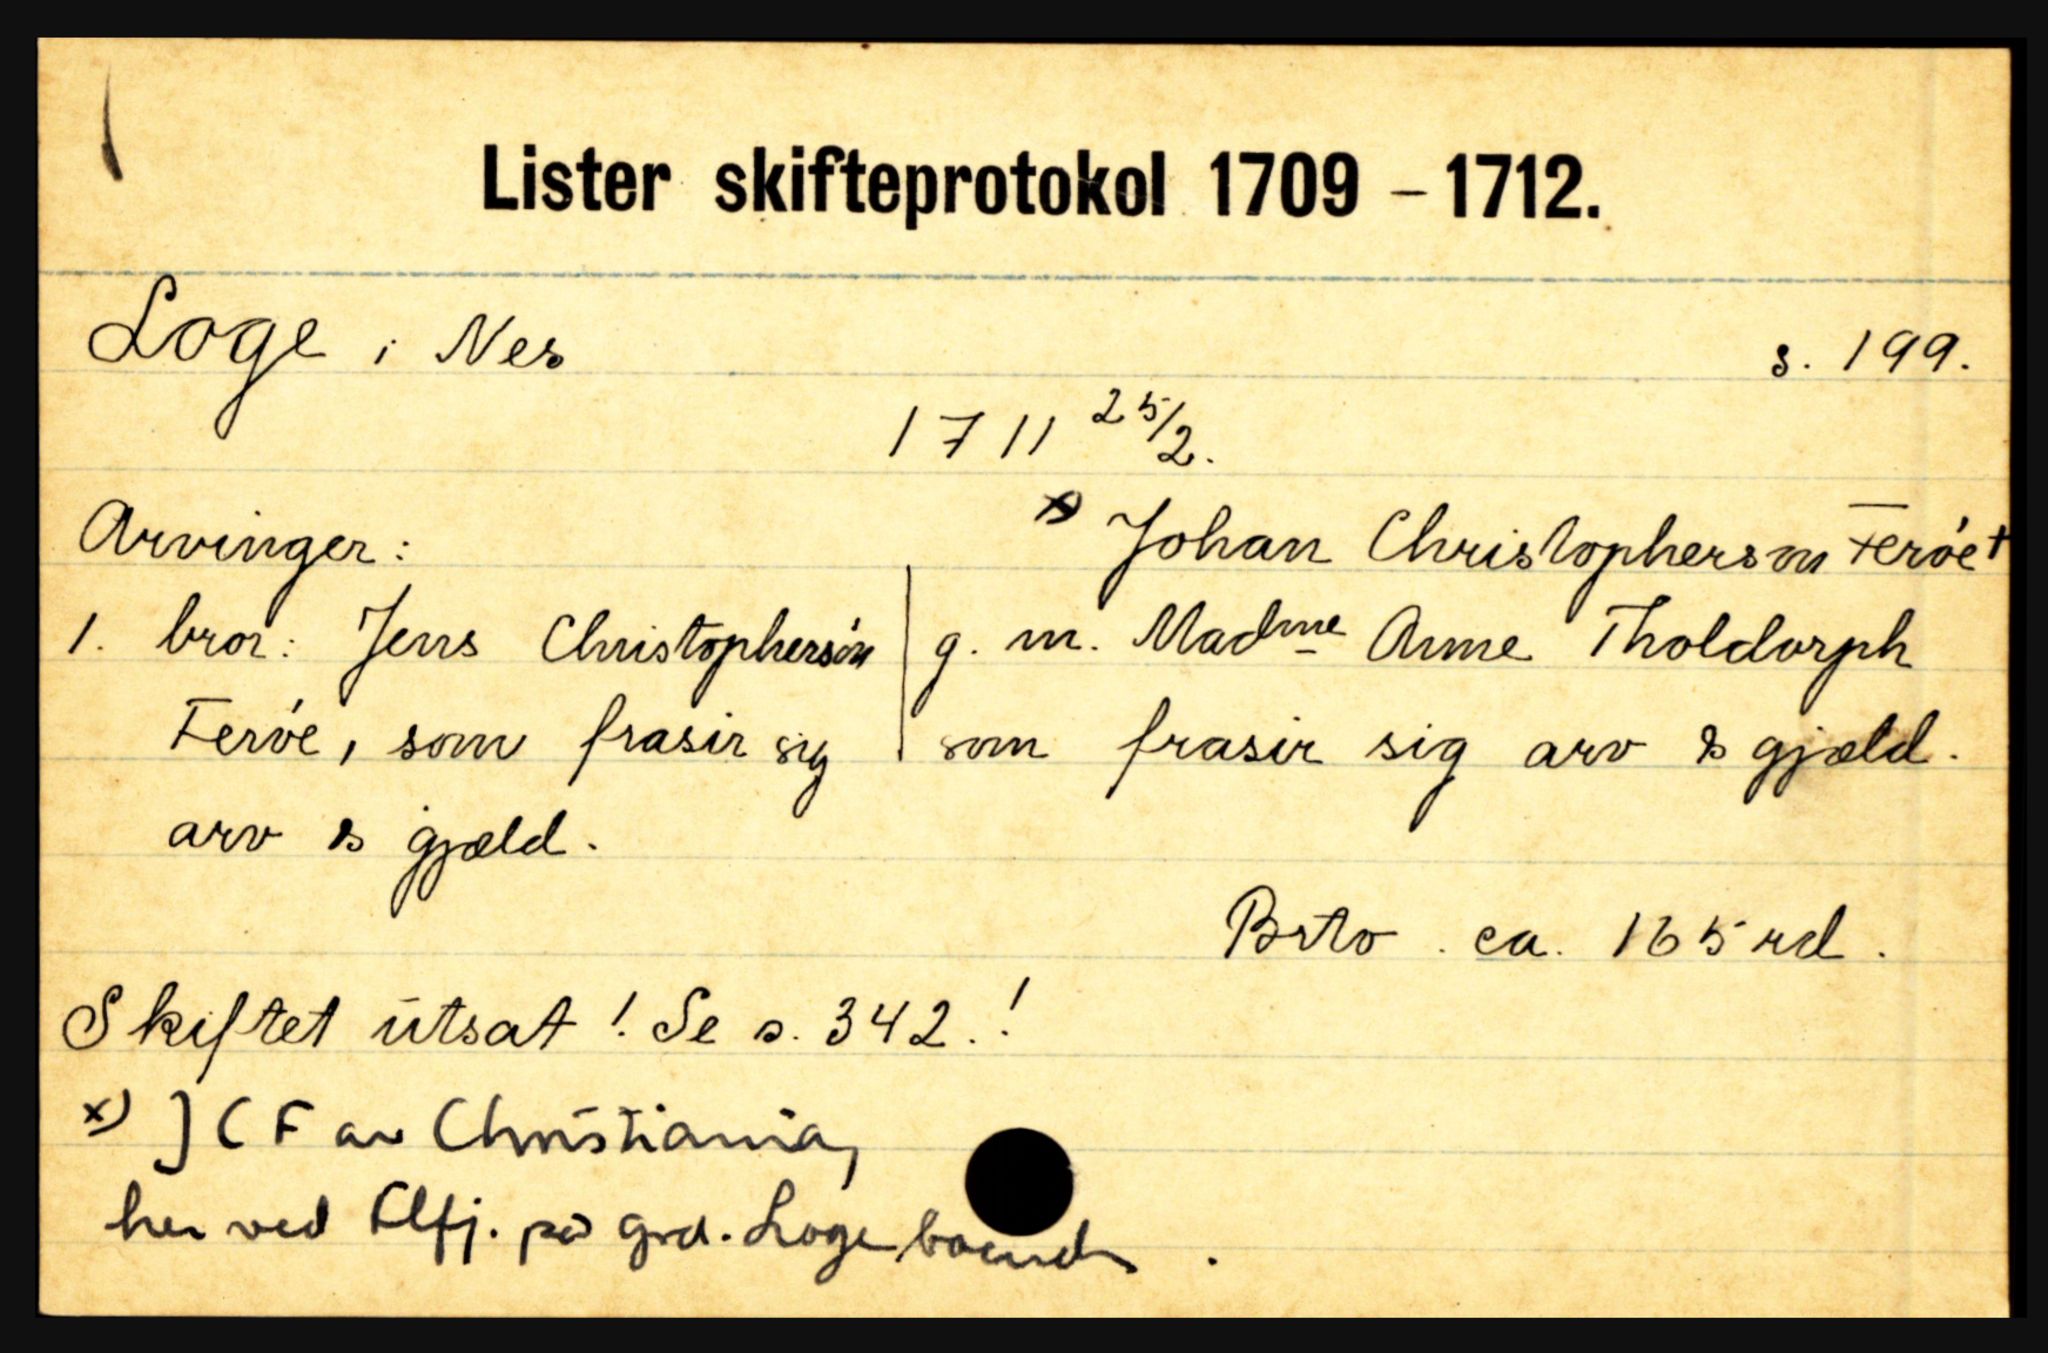 Lister skifteprotokol 1709 - 1712.
Loge i Nes s. 199.
1711 25/2.
Arvinger: x) Johan Christopherson Feröe +
1. bror: Jens Christophersön g. m. Madme Anne Tholdorph
Feröe, som frasir sig som frasir sig arv & gjæld.
arv & gjæld.
Brto. ca. 165 rd.
Skiftet utsat! Se s. 342.!
x) J C F av Christiania,
her ved Flfj. på grd. Loge boende.